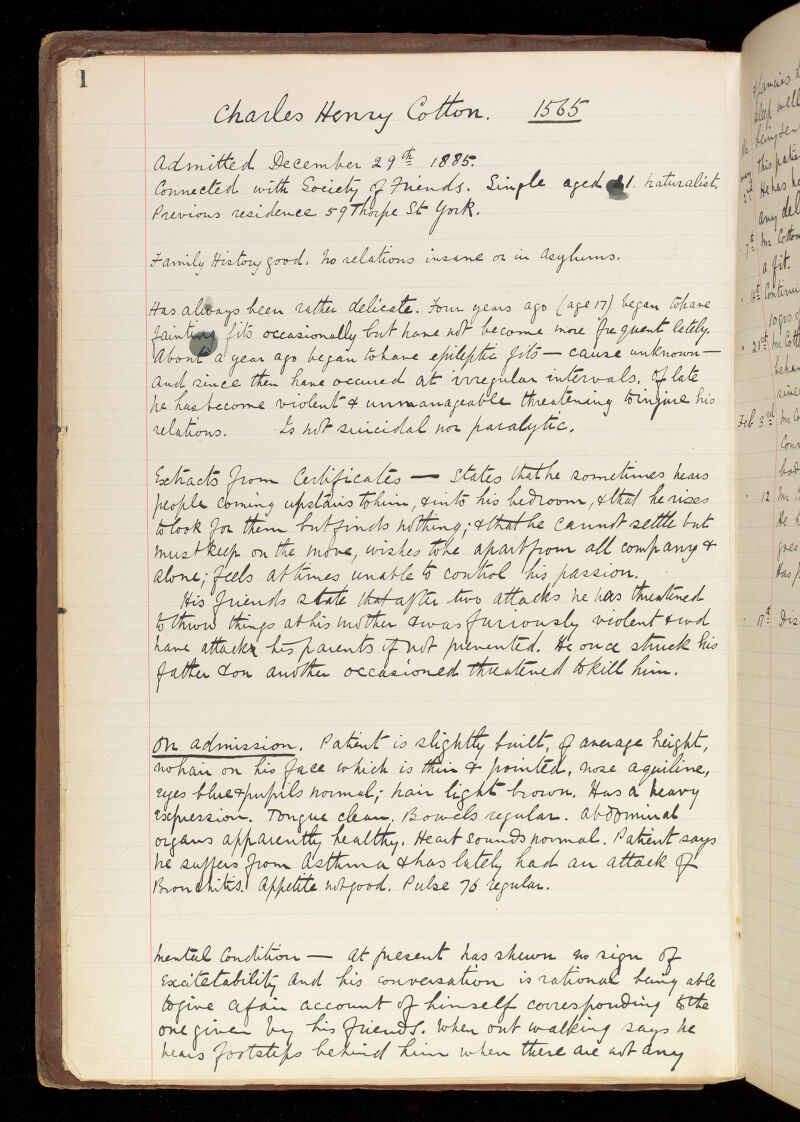 1
Charles Henry Cotton. 1565
Admitted December 29th 1885.
Connected with Society of Friends. Single aged 21. Naturalist.
Previous residence 59 Thorpe St York.
Family History good. No relations insane or in Asylums.
Has always been rather delicate. Four years ago (age 17) began to have
fainting fits occasionally but have not become more frequent lately.
About a year ago began to have epileptic fits — cause unknown —
and since then have occured at irregular intervals. Of late
he has become violent & unmanageable threatening to injure his
relations. Is not suicidal nor paralytic.
Extracts from Certificates — States that he sometimes hears
people coming upstairs to him, & into his bedroom, & that he rises
to look for them but finds nothing; & that he cannot settle but
must keep on the move, wishes to be apart from all company &
alone; feels at times unable to control his passion.
His friends state that after two attacks he has threatened
to throw things at his mother & was furiously violent & wd
have attack his parents if not prevented. He once struck his
father & on another occasioned threatened to kill him.
On admission. Patient is slightly built, of average height,
no hair on his face which is thin & pointed, nose aquiline,
eyes blue & pupils normal; hair light brown. Has a heavy
expression. Tongue clean. Bowels regular. Abdominal
organs apparently healthy. Heart sounds normal. Patient says
he suffers from Asthma & has lately had an attack of
Bronchitis. Appetite not good. Pulse 76 regular.
Mental Condition — At present has shewn no sign of
Excitetability and his conversation is rational being able
to give a fair account of himself corresponding to the
one given by his friends. When out walking says he
hears footsteps behind him when there are not any
& fancies h
sleep well
being sen
this patie
He has ha
any del
7th Mr Cotton
a fit.
Continu
10grs o
21st Mr Cott
behav
since
Feb 3rd Mr Co
Conv
bad
12 Mr
He h
goes
Has f
17th Dis